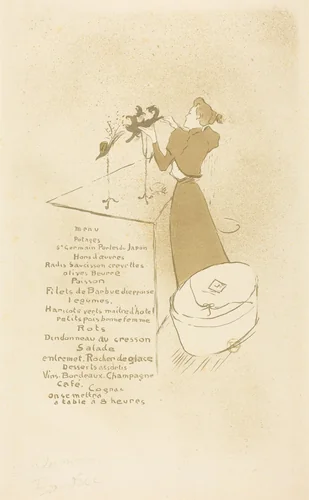 menu
Potages
St Germain Perles du Japon
Hors d'œuvres
Radis saucisson crevettes
olives Beurre
Poisson
Filets de Barbue dieppoise
Legumes.
Haricots verts maitre d'hotel
petits pois bonne femme
Rots
Dindonneau au cresson
Salade
entremet. Rocher de glace
Desserts
Vins. Bordeaux. Champagne
Café. Cognac
on se mettra
a table a 8 heures